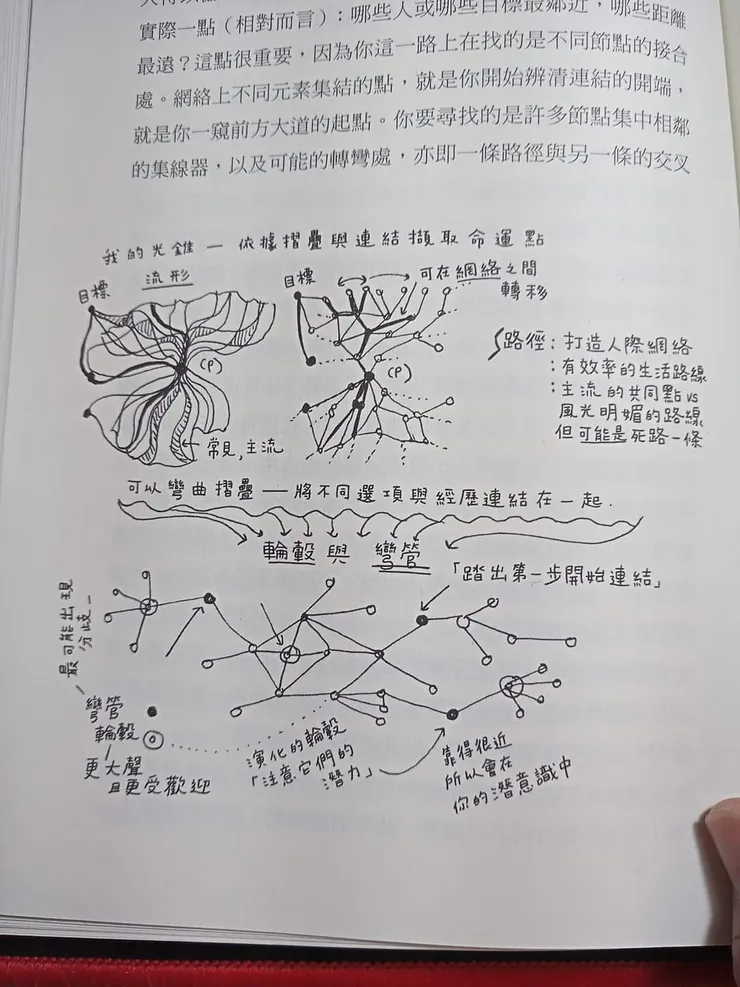 實際一點（相對而言）：哪些人或哪些目標最鄰近，哪些距離
最遠？這點很重要，因為你這一路上在找的是不同節點的接合
處。網絡上不同元素集結的點，就是你開始辨清連結的開端，
就是你一窺前方大道的起點。你要尋找的是許多節點集中相鄰
的集線器，以及可能的轉彎處，亦即一條路徑與另一條的交叉
我的光錐—依據摺疊與連結擷取命運點
流形
目標
(P)
常見,主流
目標
可在網絡之間
轉移
(P)
路徑：打造人際網絡
：有效率的生活路線
：主流的共同點vs
風光明媚的路線
但可能是死路一條
可以彎曲摺疊——將不同選項與經歷連結在一起.
輪轂與彎管
「踏出第一步開始連結」
最可能出現
分歧
彎管
輪轂
更大聲
且更受歡迎
演化的輪轂
「注意它們的
潛力」
靠得很近
所以會在
你的潛意識中